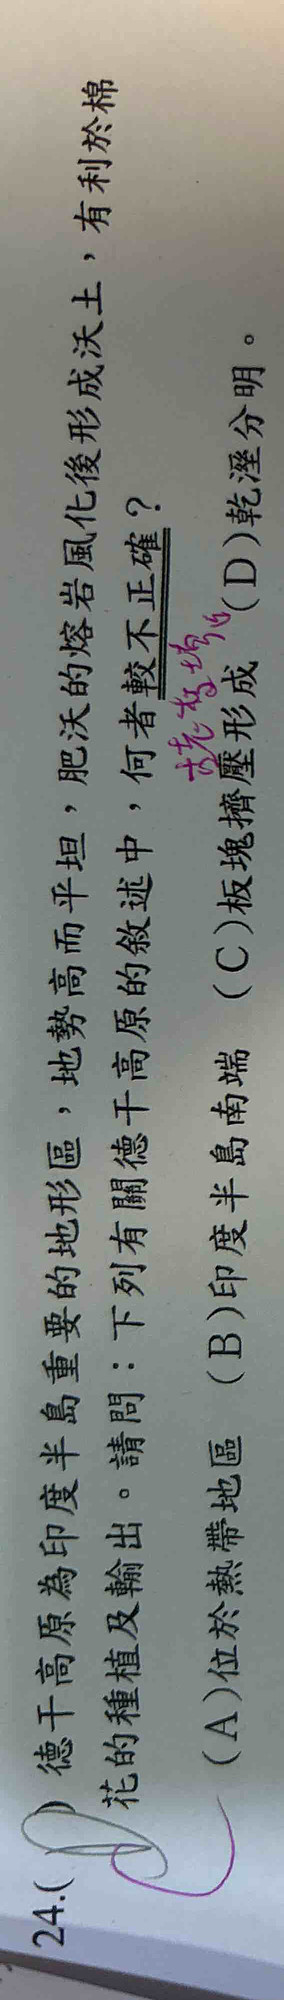 24.( )德干高原為印度半島重要的地形區，地勢高而平坦，肥沃的熔岩風化後形成沃土，有利於棉
花的種植及輸出。請問：下列有關德干高原的敘述中，何者較不正確？
(A)位於熱帶地區 (B)印度半島南端 (C)板塊擠壓形成 (D)乾溼分明。